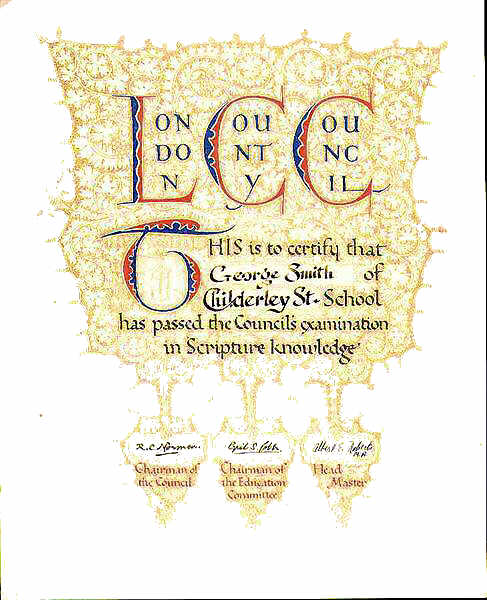 LONDON COUNTY COUNCIL
THIS is to certify that
George Smith of
Childerley St. School
has passed the Council's examination
in Scripture knowledge
R.C. Norman.
Cyril S. Cobb.
Albert E. Roberts
M.A.
Chairman of
the Council
Chairman of
the Education
Committee
Head
Master